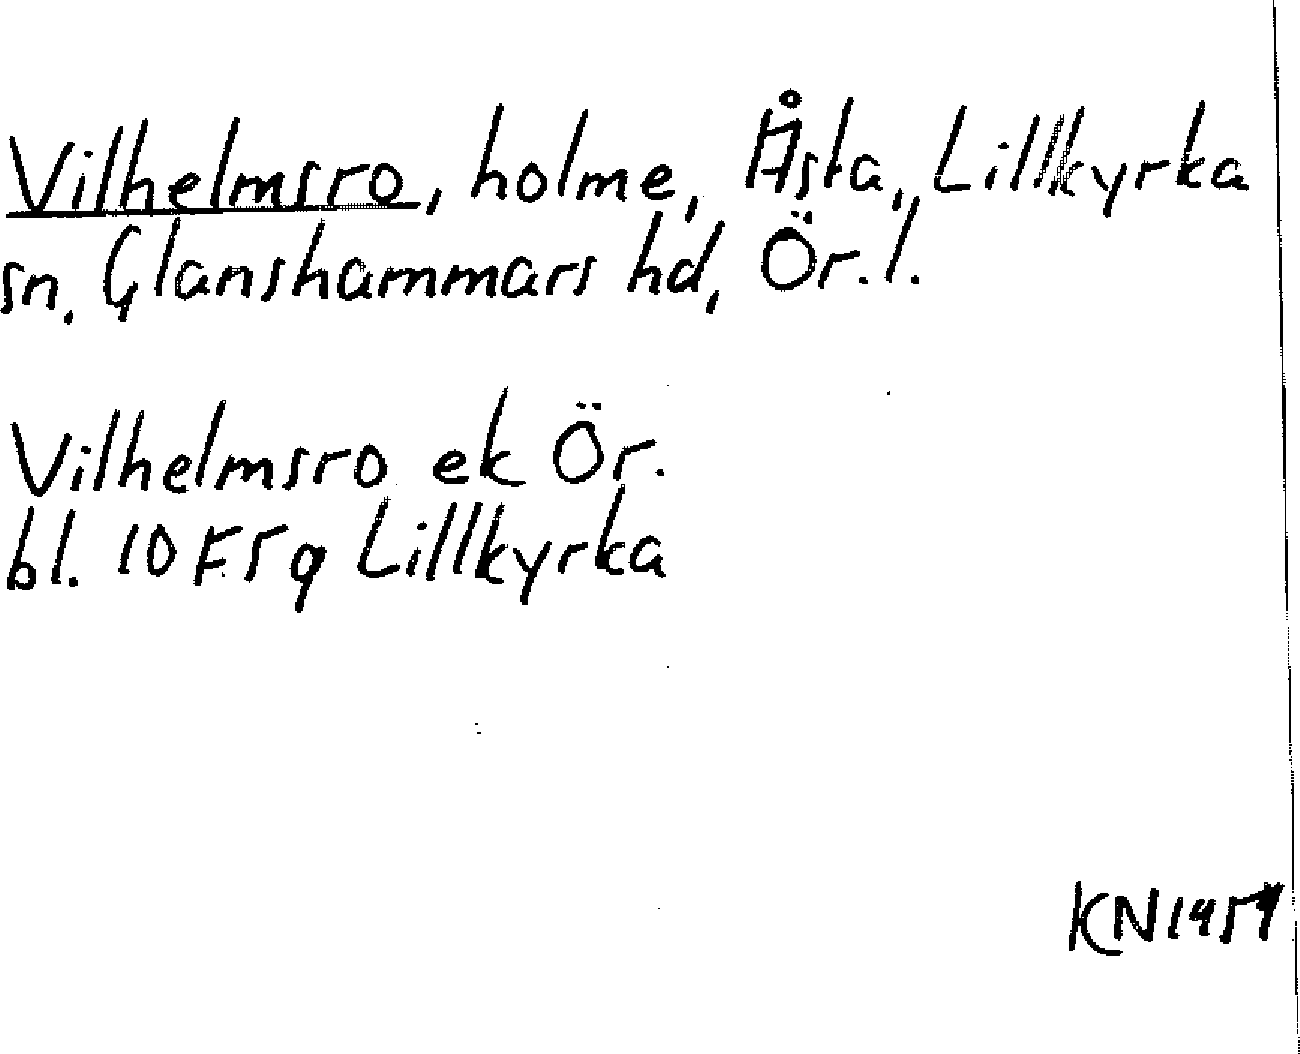 Vilhelmsro, holme, Åsta, Lillkyrka
sn. Glanshammars hd, Ör. l.
Vilhelmsro ek Ör.
bl. 10F5g Lillkyrka